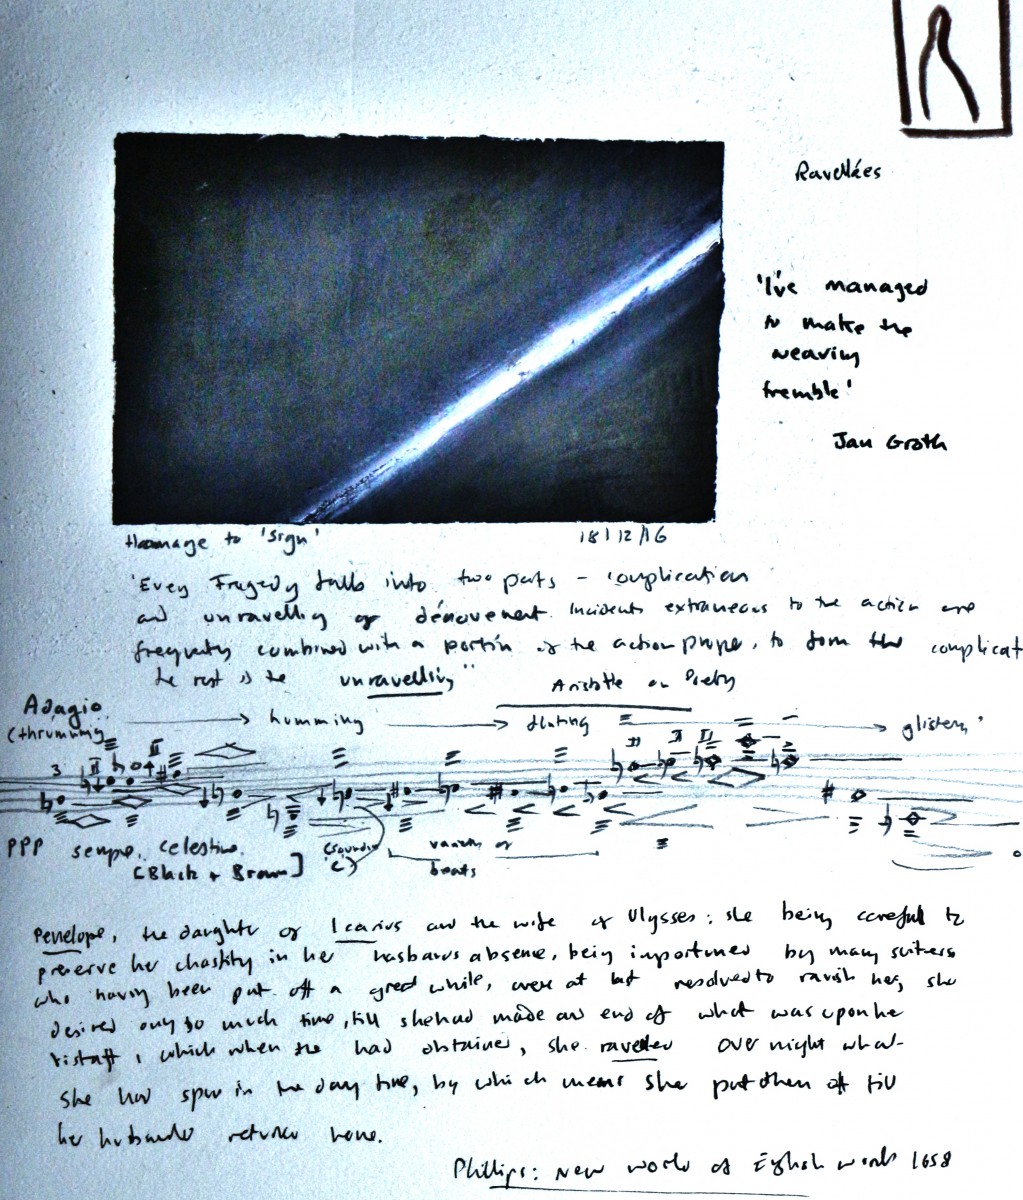 Ravellées
'I've managed
to make the
weaving
tremble'
Jan Groth
Hommage to 'Sign'
18/12/16
'Every Tragedy falls into two parts – complication
and unravelling or dénouement. Incidents extraneous to the action are
frequently combined with a portion of the action proper, to form the complicat
the rest is the unravelling"
Aristotle on Poetry
Adagio
(thrumming → humming → fluting → glisten'
3
PPP sempre, celestine.
[Black + Brown]
(sound
'c')
variety of
beats
Penelope, the daughter of Icarius and the wife of Ulysses: she being careful to
preserve her chastity in her husbands absence, being importuned by many suiters
who having been put off a great while, were at last resolved to ravish her, she
desired only so much time, till she had made an end of what was upon he
distaff, which when she had obtained, she ravelled over night what
she had spun in the day time, by which means she put them off till
her husbands return home.
Phillips: New World of English Words 1658